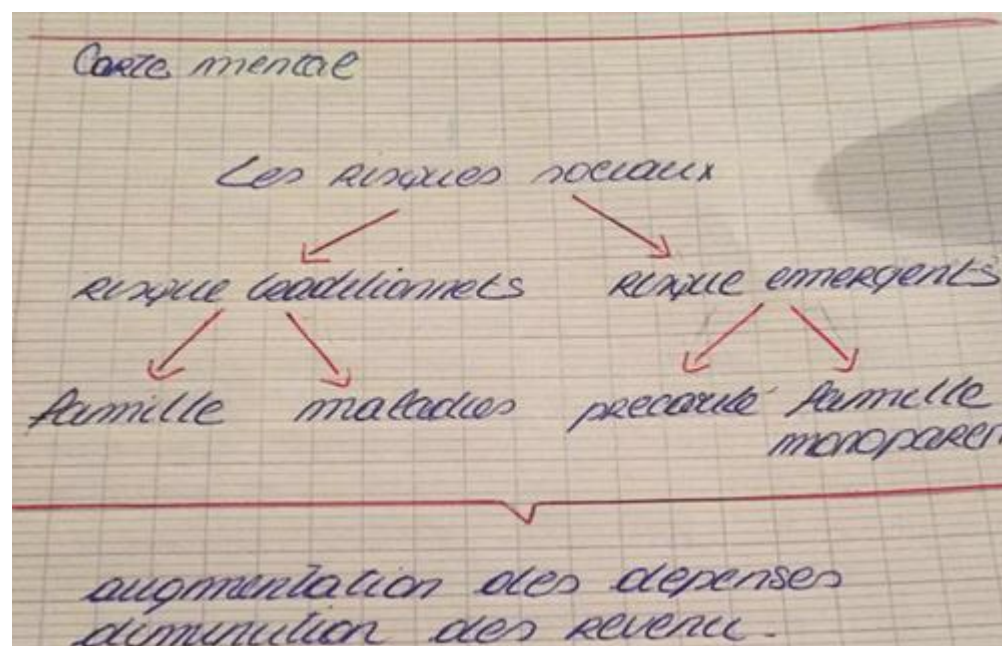 Carte mental
Les risques sociaux
risque traditionnels risque emergents
famille maladies precarité famille
monoparen
augmentation des depenses
diminution des revenu.